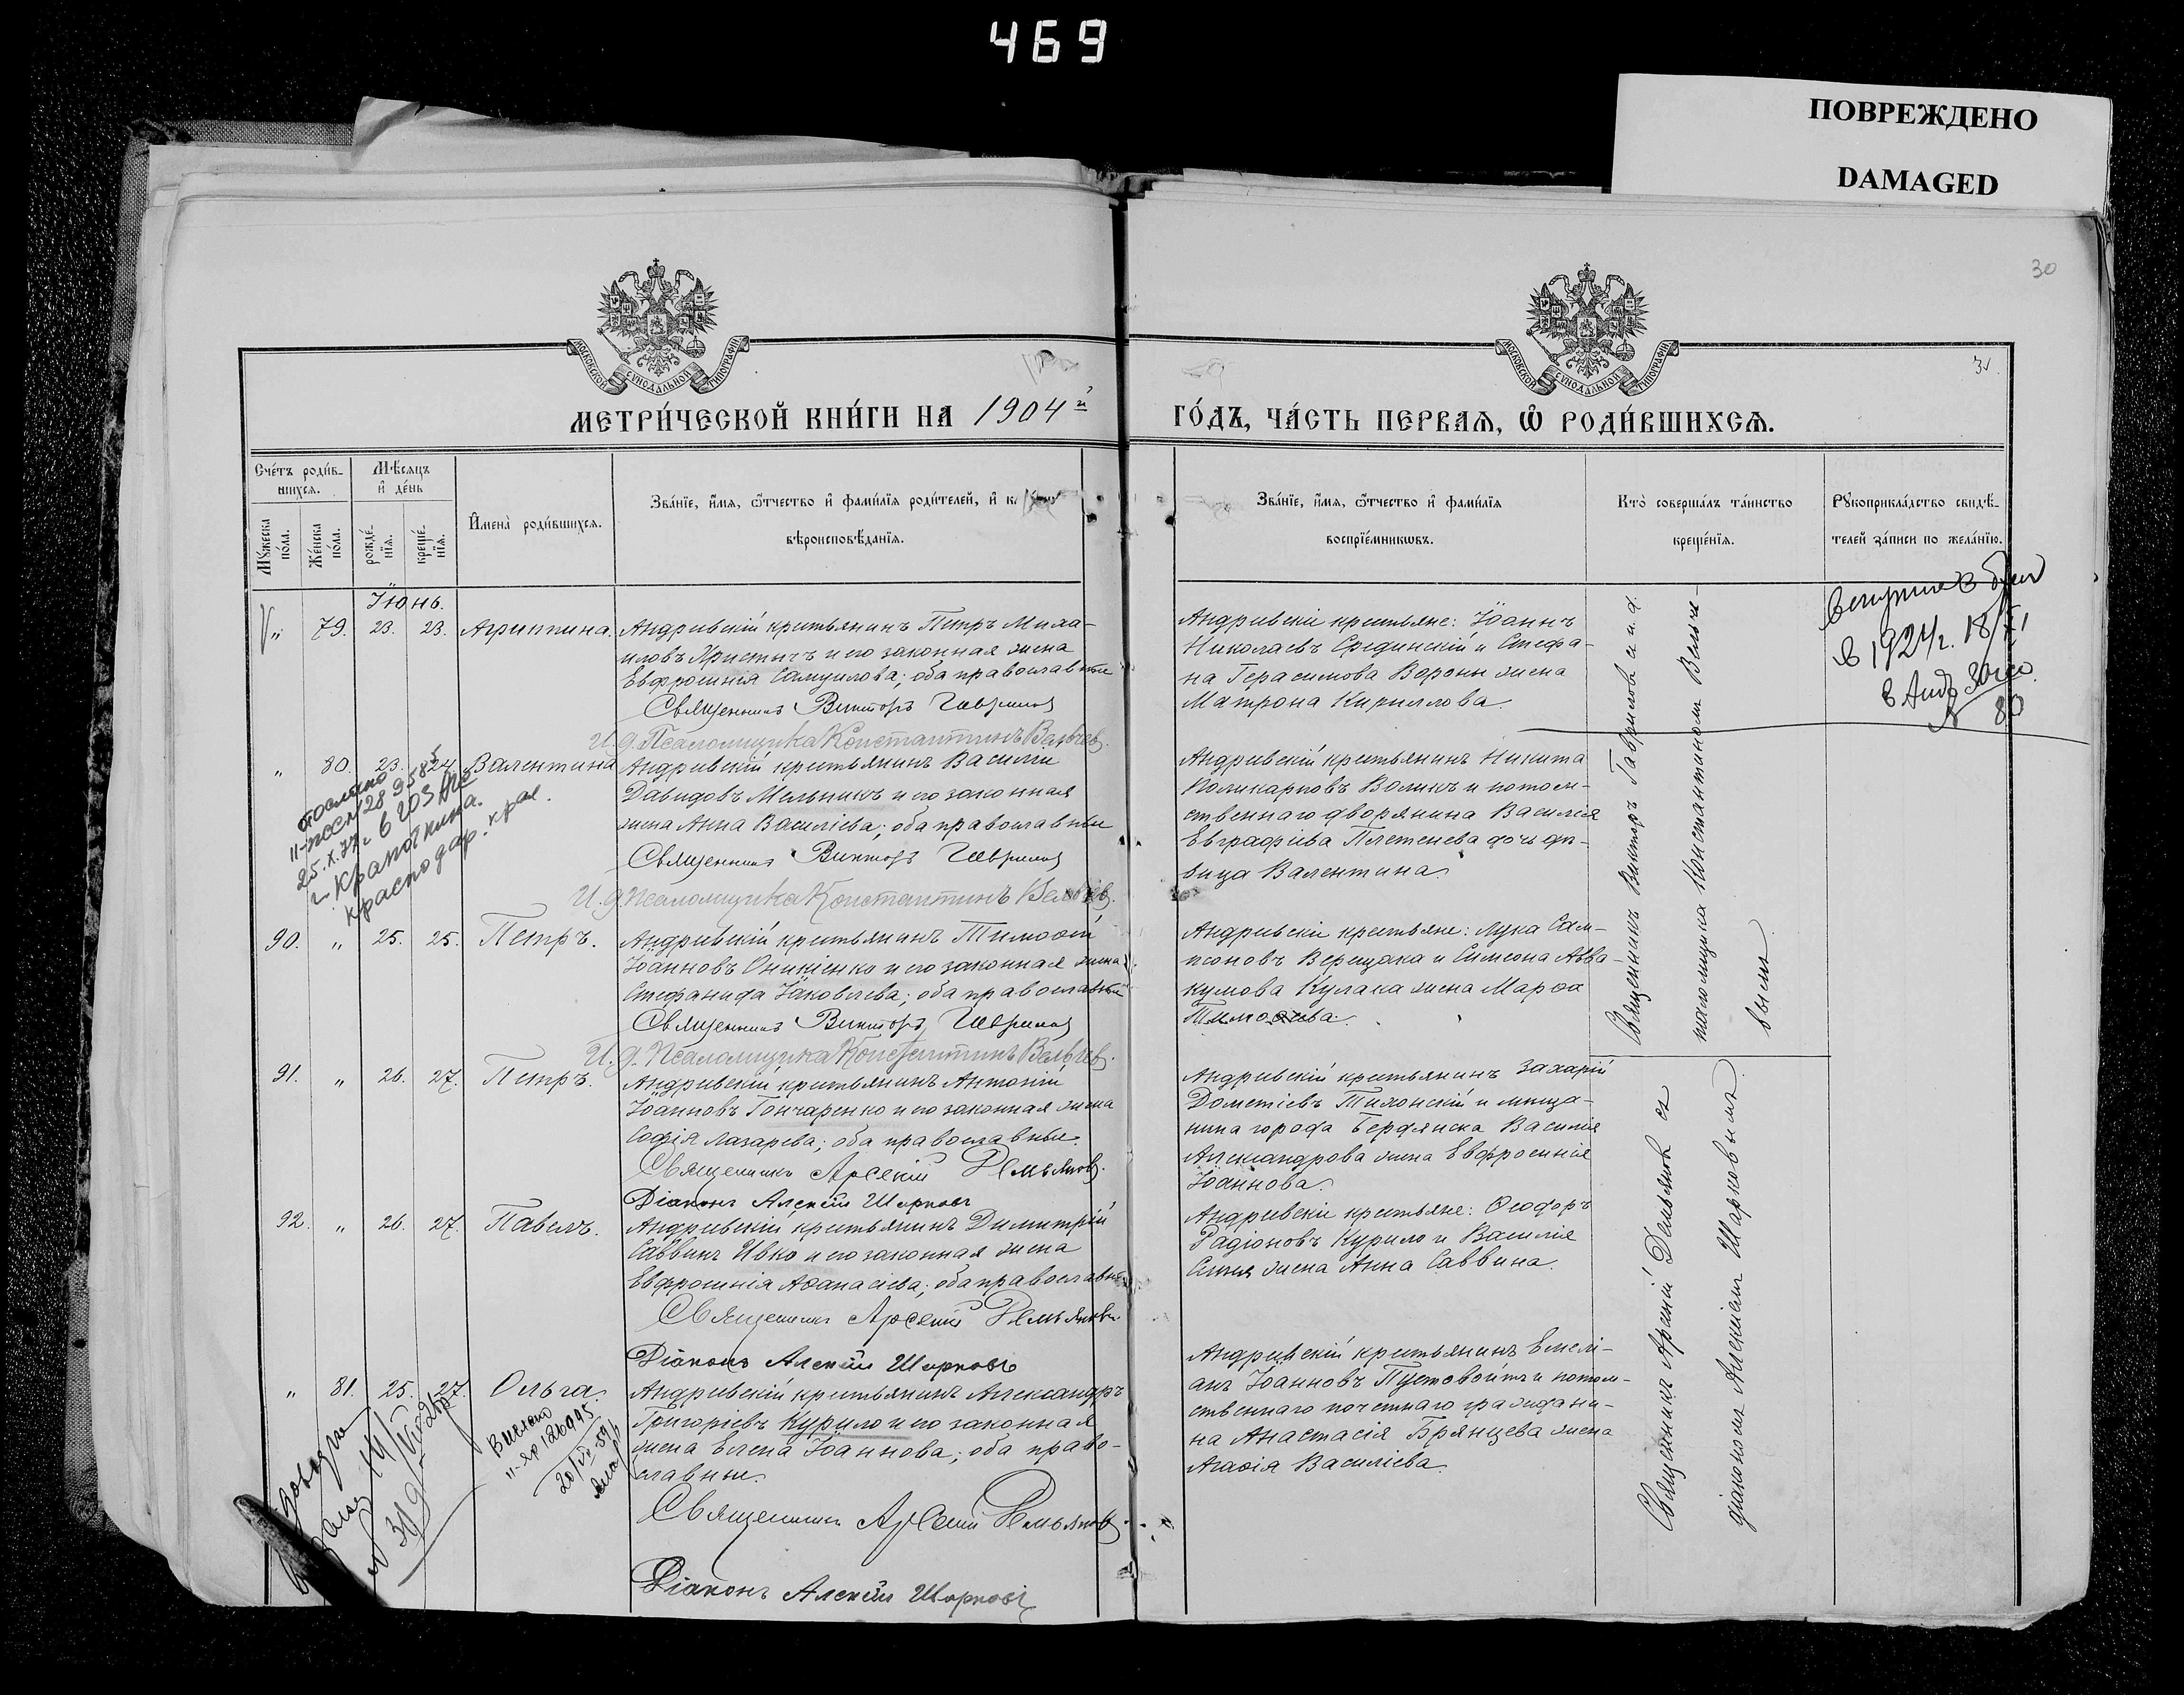 469
ПОВРЕЖДЕНО
DAMAGED
30
31.
МОСКОВСКОЙ СѴНОДАЛЬНОЙ ТИПОГРАФІИ
МОСКОВСКОЙ СѴНОДАЛЬНОЙ ТИПОГРАФІИ
МЕТРИ́ЧЕСКОЙ КНИ́ГИ НА 1904й
ГО́ДЪ, ЧА́СТЬ ПЕРВАѦ, Ѽ РОДИ́ВШИХСѦ.
Сче́тъ роди́в-
шихсѧ.
Мѣ́сѧцъ
и҆ де́нь
Мꙋжеска по́ла.
Же́нска по́ла.
рожде́-
нїѧ.
креще́-
нїѧ.
И҆мена̀ роди́вшихсѧ.
Зва́нїе, и҆́мѧ, ѻ҆́тчество и҆ фами́лїѧ роди́телей, и҆
вѣроисповѣ́данїѧ.
Зва́нїе, и҆́мѧ, ѻ҆́тчество и҆ фами́лїѧ
воспрїе́мникѡвъ.
Кто̀ соверша́лъ та́инство
креще́нїѧ.
Рꙋкоприкла́дство свидѣ́-
телей за́писи по жела́нїю.
Іюнь.
" 79. 23. 23. Агриппина.
Андреевскій крестьянинъ Петръ Миха-
иловъ Христычъ и его законная жена
Евфросинія Самуилова; оба православные
Священникъ Викторъ Гавриловъ
И. д. Псаломщика Константинъ Вельчев.
Андреевскіе крестьяне: Іоаннъ
Николаевъ Срединскій и Стефа-
на Герасимова Вороны жена
Матрона Кириллова.
в 1924г. 18/XI
№ 80
" 80. 23. 24. Валентина
Андреевскій крестьянинъ Василій
Давидовъ Мельникъ и его законная
жена Анна Василіева; оба православные
Священникъ Викторъ Гавриловъ
И. д. Псаломщика Константинъ Вельчев.
Андреевскій крестьянинъ Никита
Поликарповъ Воликъ и потом-
ственнаго дворянина Василія
Евграфіева Плетенева дочь дѣ-
вица Валентина.
25.X.77г.
г. Кропоткина.
краснодар. края.
90. " 25. 25. Петръ.
Андреевскій крестьянинъ Тимоѳей
Іоанновъ Оникіенко и его законная жена
Стефанида Іаковлева; оба православные
Священникъ Викторъ Гавриловъ
И. д. Псаломщика Константинъ Вельчев.
Андреевскіе крестьяне: Лука Сам-
псоновъ Верещака и Симеона Авва-
кумова Кулака жена Марѳа
Тимоѳеева.
Священникъ Викторъ Гавриловъ съ и. д.
псаломщика Константиномъ Вельче-
вымъ
91. " 26. 27. Петръ.
Андреевскій крестьянинъ Антоній
Іоанновъ Гончаренко и его законная жена
Софія Лазарева; оба православные.
Священникъ Арсеній Демьянов.
Діаконъ Алексій Шарковъ
Андреевскій крестьянинъ Захарій
Дометіевъ Тихонскій и мѣща-
нина города Бердянска Василія
Александрова жена Евфросинія
Іоаннова.
92. " 26. 27. Павелъ.
Андреевскій крестьянинъ Димитрій
Саввинъ Ивко и его законная жена
Евфросинія Аѳанасіева; оба православные
Священникъ Арсеній Демьянов.
Діаконъ Алексій Шарковъ
Андреевскіе крестьяне: Ѳеодоръ
Радіоновъ Курило и Василія
жена Анна Саввина.
" 81. 25. 27. Ольга.
Андреевскій крестьянинъ Александръ
Григоріевъ Курило и его законная
жена Елена Іоаннова; оба право-
славные.
Священникъ Арсеній Демьянов.
Діаконъ Алексій Шарковъ
Андреевскій крестьянинъ Емелі-
анъ Іоанновъ Пустовойтъ и потом-
ственнаго почетнаго граждани-
на Анастасія Брянцева жена
Агаѳія Василіева.
Священникъ Арсеній Демьянов съ
діакономъ Алексіемъ Шарковымъ.